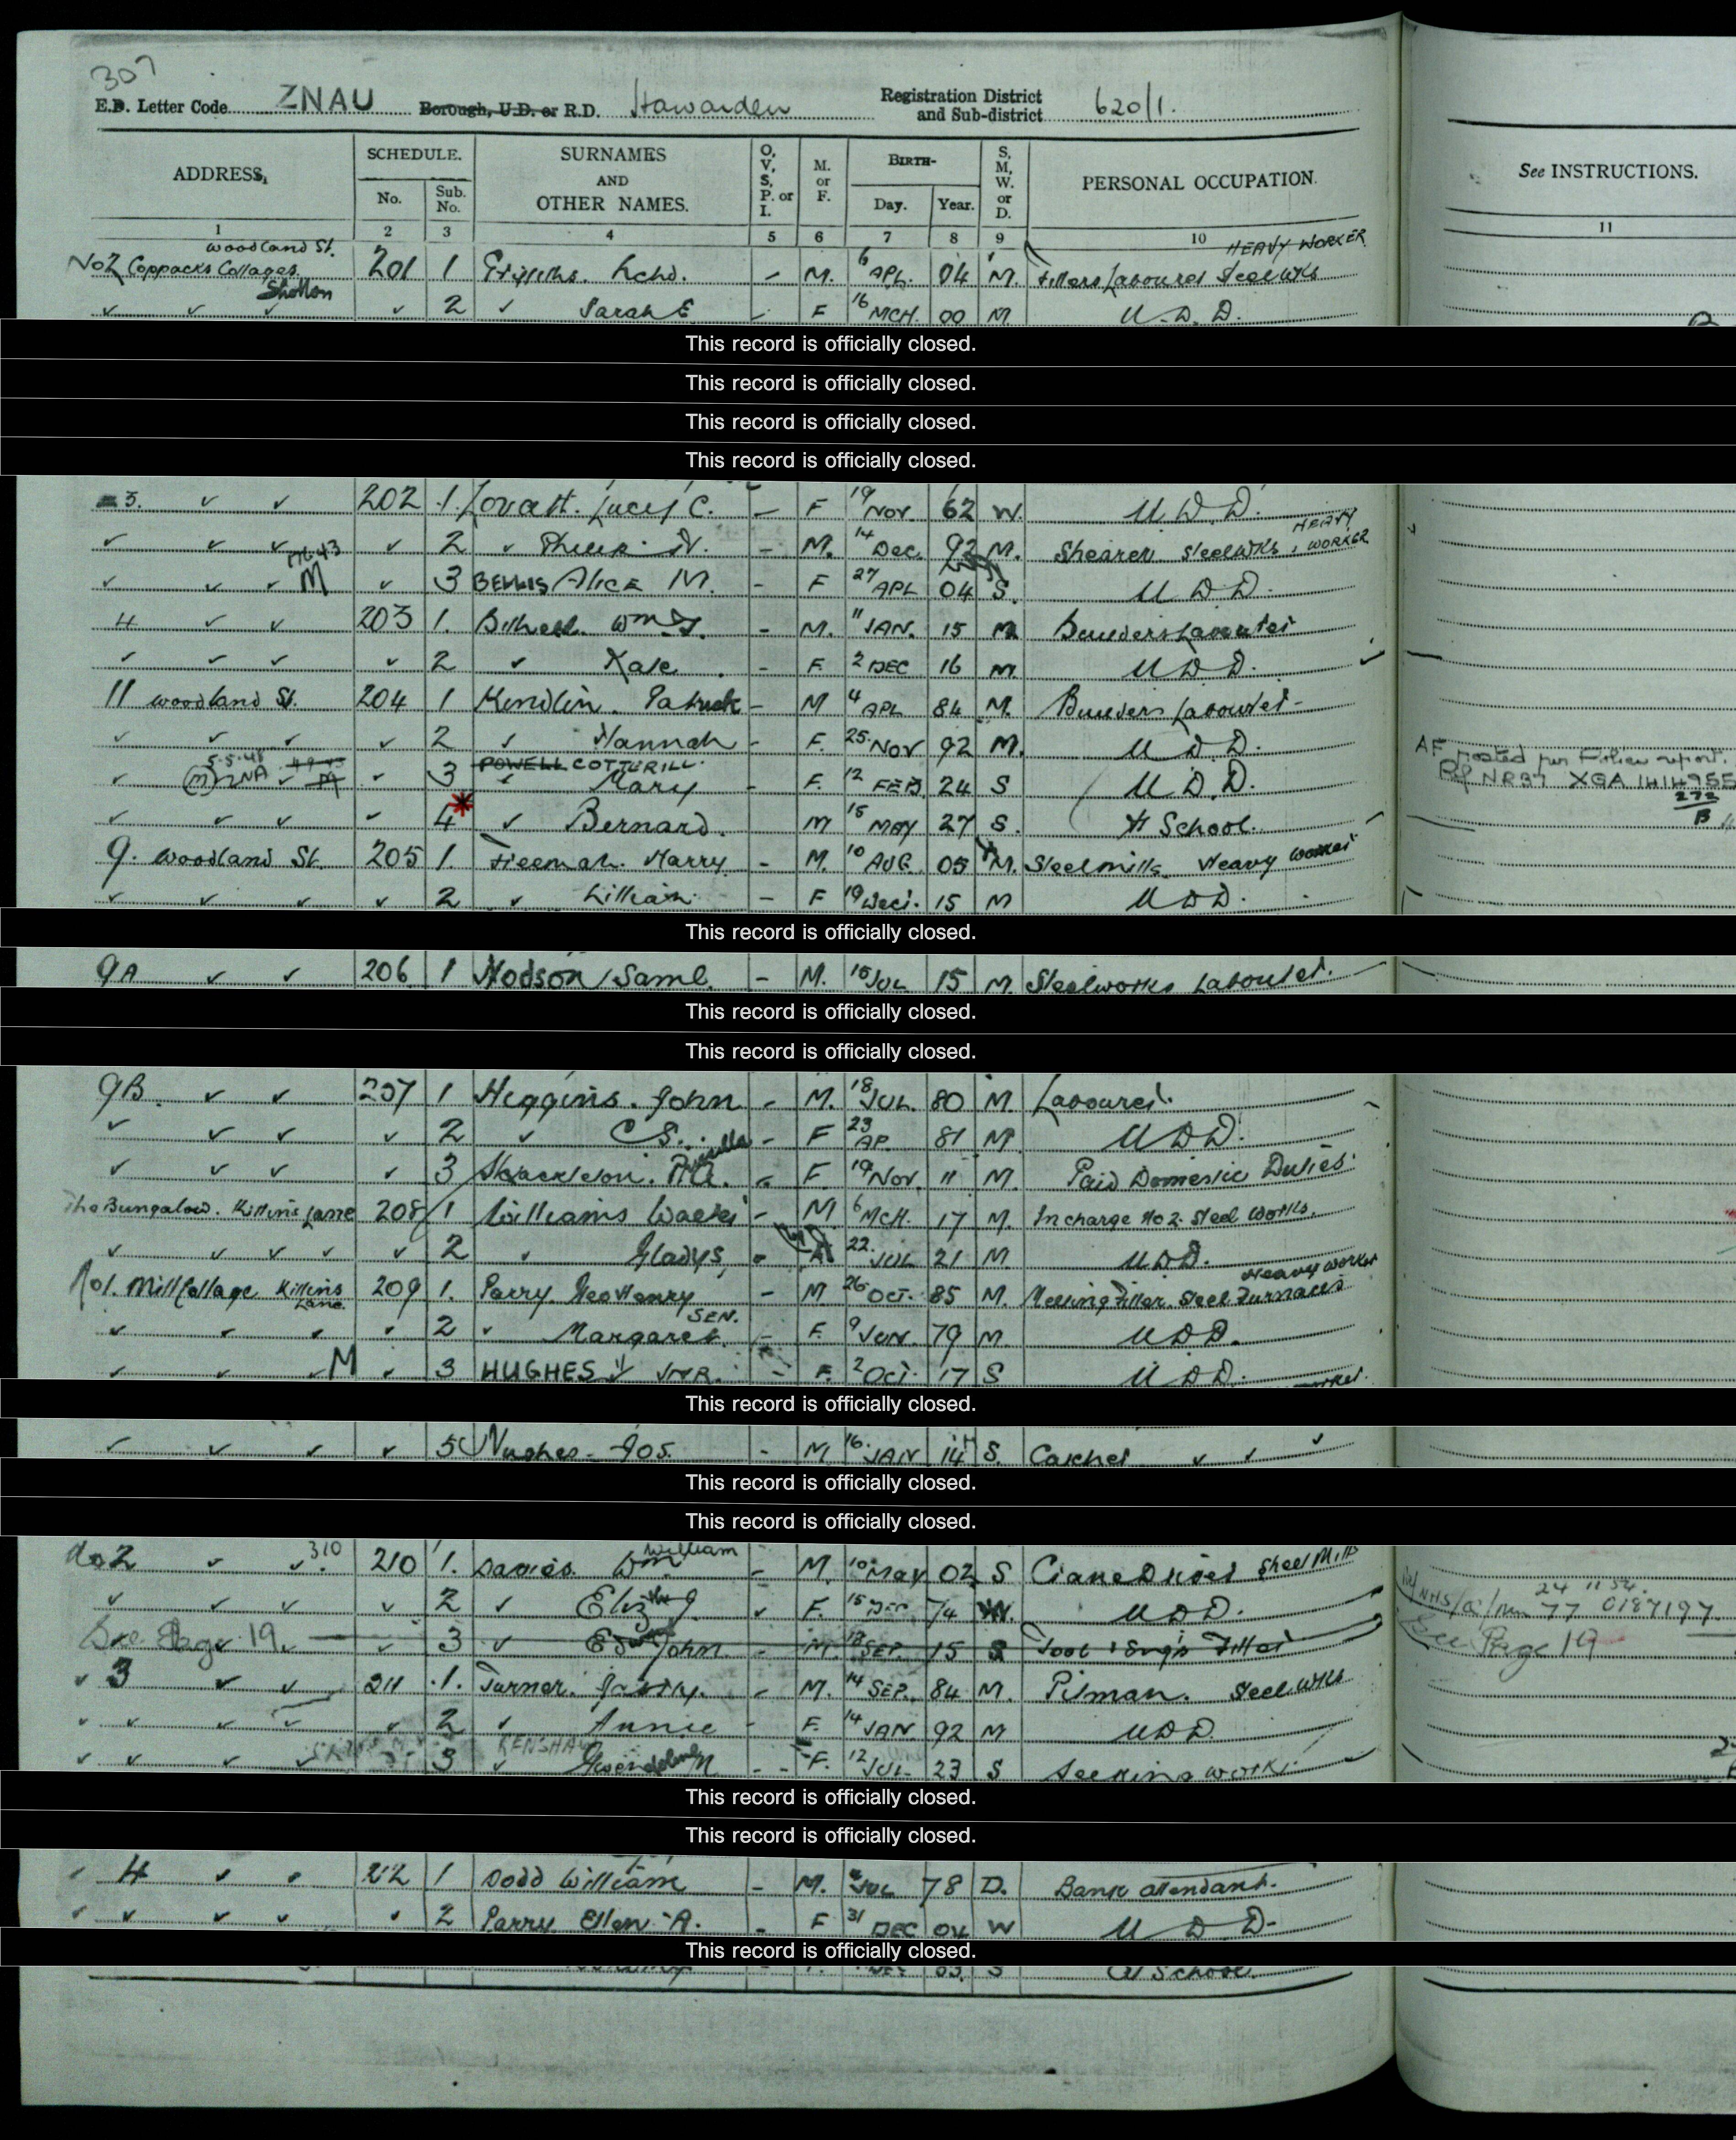 307
E.D. Letter Code ZNAU Borough, U.D. or R.D. Hawarden Registration District and Sub-district 620/1.
ADDRESS, SCHEDULE. SURNAMES AND OTHER NAMES. O, V, S, P. or I. M. or F. BIRTH- S, M, W. or D. PERSONAL OCCUPATION. See INSTRUCTIONS.
No. Sub. No. Day. Year.
1 2 3 4 5 6 7 8 9 10 11
woodland St. HEAVY WORKER
No2 Coppacks Cottages 201 1 Griffiths. Richd. - M. 6 APL. 04 M. Fitters Labourer Steelwks
Shotton
✓ ✓ ✓ ✓ 2 ✓ Sarah E - F 16 MCH. 00 M U.D.D.
This record is officially closed.
This record is officially closed.
This record is officially closed.
This record is officially closed.
3. ✓ ✓ 202 1. Lovatt. Lucy C. - F 19 Nov. 62 W. U.D.D.
✓ ✓ ✓ ✓ 2 ✓ - M. 14 Dec. 92 M. Shearer Steelwks, HEAVY WORKER
✓ ✓ ✓ M ✓ 3 BELLIS Alice M. - F 27 APL 04 S. U.D.D.
4 ✓ ✓ 203 1. Bithell. Wm - M. 11 JAN. 15 M Builders Labourer
✓ ✓ ✓ ✓ 2 ✓ Kate. - F. 2 DEC 16 M. U.D.D.
11 woodland St. 204 1 Kindlin. Patrick - M 4 APL 84 M. Builders Labourer -
✓ ✓ ✓ ✓ 2 ✓ Hannah - F. 25 Nov 92 M. U.D.D.
5.5.48 POWELL COTTERILL. AF posted per
✓ (M) ZNA ✓ M ✓ 3 ✓ Mary - F. 12 FEB. 24 S U.D.D. NR37 XGA
272
B
✓ ✓ ✓ ✓ 4 ✓ Bernard. M 15 MAY 27 S. At School.
9. Woodland St. 205 1. Freeman. Harry. - M. 10 AUG. 05 M. Steelmills. Heavy Worker
✓ ✓ ✓ ✓ 2 ✓ Lillian - F 19 Dec. 15 M U.D.D.
This record is officially closed.
9A ✓ ✓ 206 1 Hodson Saml. - M. 15 JUL 15 M. Steelworks Labourer.
This record is officially closed.
This record is officially closed.
9B. ✓ ✓ 207 1 Higgins. John - M. 18 JUL. 80 M. Labourer.
✓ ✓ ✓ ✓ 2 ✓ C S. - F 23 AP. 81 M U.D.D.
✓ ✓ ✓ ✓ 3 Shackleton. - F. 19 Nov. 11 M. Paid Domestic Duties
The Bungalow. Killins Lane 208 1 Williams Walter - M. 6 MCH. 17 M. In charge No 2. Steel Works.
✓ ✓ ✓ ✓ ✓ 2 ✓ Gladys - 22 JUL 21 M U.D.D.
No1. Mill Cottage Killins Lane 209 1. Parry Geo Henry - M 26 OCT. 85 M. Melling Fitter. Steel Furnaces Heavy Worker
✓ ✓ ✓ ✓ 2 ✓ Margaret SEN. - F. 9 JUN. 79 M. U.D.D.
✓ ✓ ✓ M ✓ 3 HUGHES JNR. - F. 2 OCT. 17 S U.D.D.
This record is officially closed.
✓ ✓ ✓ ✓ 5 Hughes - Jos. - M. 16 JAN 14 S. Catcher ✓ ✓ ✓
This record is officially closed.
This record is officially closed.
do 2 ✓ ✓ 310 210 1. Davies. Wm William - M. 10 May 02 S Crane Driver Steel Mills
✓ ✓ ✓ ✓ 2 ✓ Eliz J. ✓ F. 15 DEC 74 W. U.D.D. 24 11 54. 77 0187197
See Page 19 ✓ 3 ✓ John - M. 18 SEP. 15 S Tool & Eng'r Fitter See Page 19
✓ 3 ✓ ✓ 211 1. Turner. - M. 14 SEP. 84 M. Pitman. Steel Wks
✓ ✓ ✓ ✓ ✓ 2 ✓ Annie - F. 14 JAN 92 M UDD.
✓ ✓ ✓ 3 RENSHAW ✓ Gwendoline M - F. 12 JUL. 23 S Seeking work
This record is officially closed.
This record is officially closed.
4 ✓ ✓ 212 1 Dodd William - M. JUL 78 D. Bank attendant.
✓ ✓ ✓ ✓ ✓ 2 Parry Ellen A. - F 31 DEC 04 W U D D-
This record is officially closed.
At School.